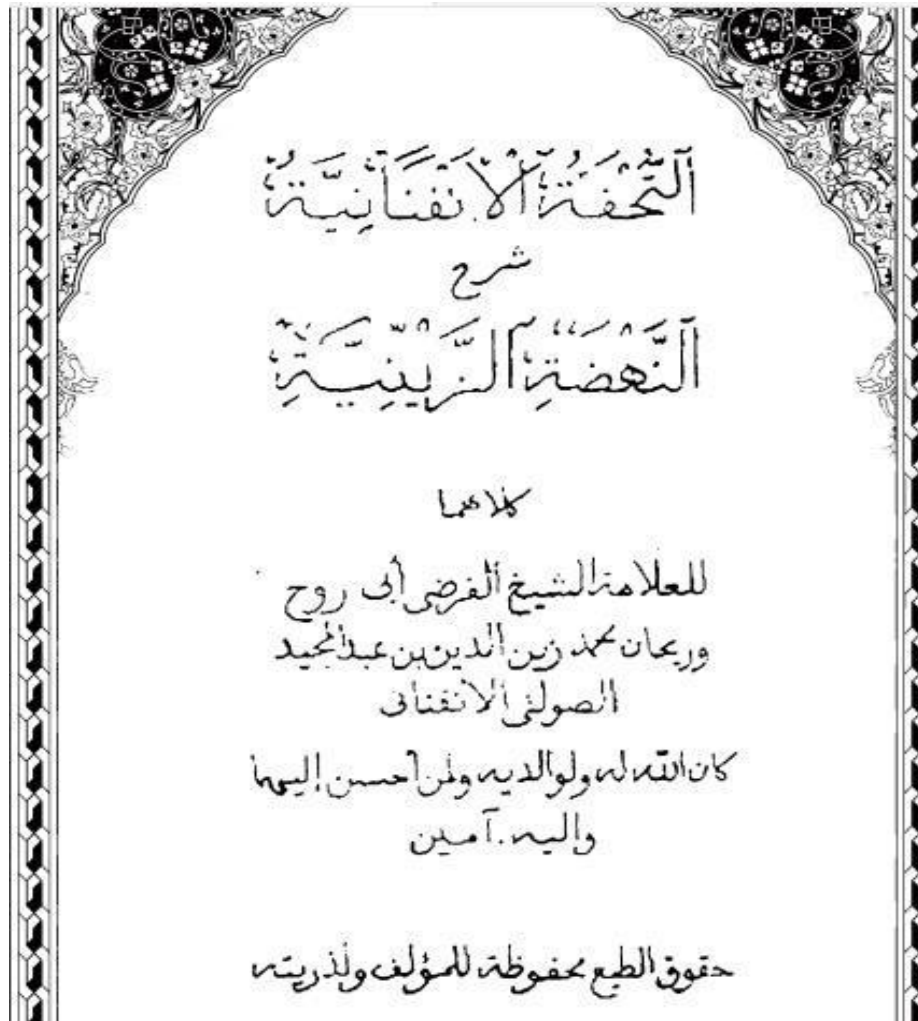 اَلتُّحْفَةُ الْأَنْفَنَانِيَّةُ
شرح
اَلنَّهْضَةِ الزَّيْنِيَّةِ
كلاهما
للعلامة الشيخ الفرضي أبى روح
وريحان محمد زين الدين بن عبد المجيد
الصولتى الأنفنانى
كان الله له ولوالديه ولمن أحسن إليهما
وإليه. آمين
حقوق الطبع محفوظة للمؤلف ولذريته